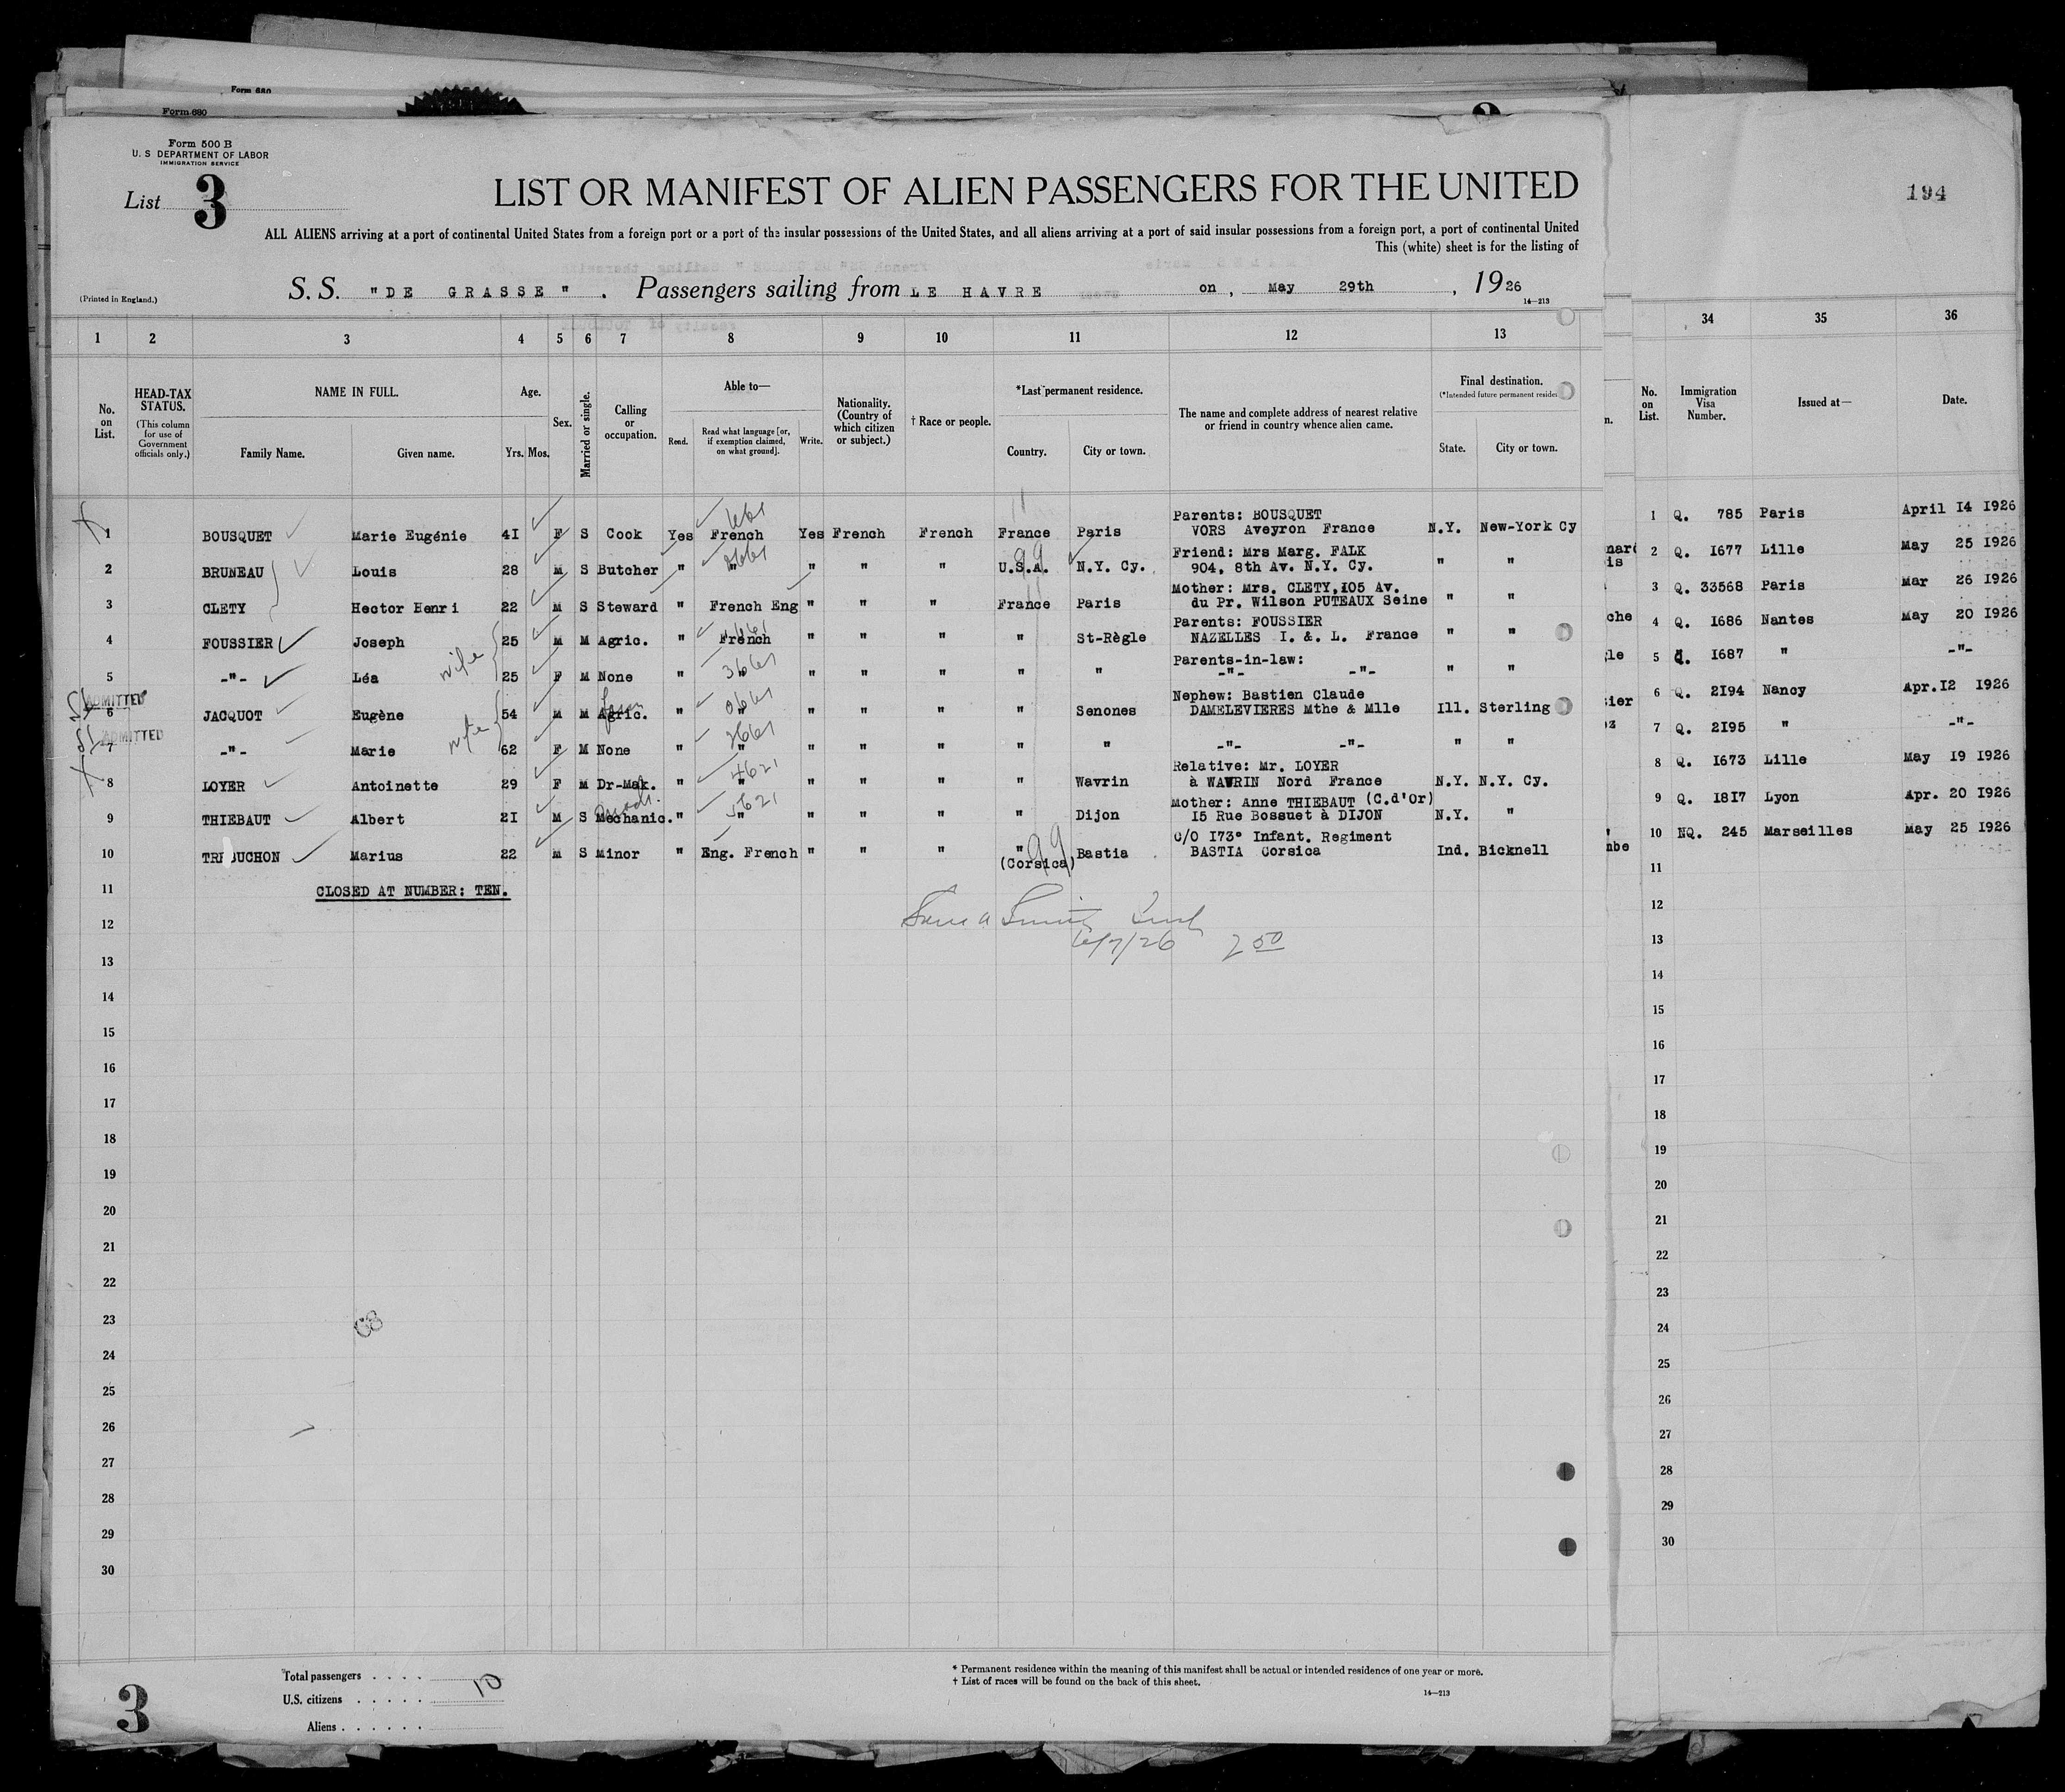 Form 680
Form 680
Form 500 B
U. S DEPARTMENT OF LABOR
IMMIGRATION SERVICE
List 3
LIST OR MANIFEST OF ALIEN PASSENGERS FOR THE UNITED
194
ALL ALIENS arriving at a port of continental United States from a foreign port or a port of the insular possessions of the United States, and all aliens arriving at a port of said insular possessions from a foreign port, a port of continental United
This (white) sheet is for the listing of
(Printed in England.)
S. S. "DE GRASSE". Passengers sailing from LE HAVRE on, May 29th, 1926
14—213
1 2 3 4 5 6 7 8 9 10 11 12 13 34 35 36
No. on List.
HEAD-TAX STATUS.
(This column for use of Government officials only.)
NAME IN FULL.
Family Name. Given name.
Age.
Yrs. Mos.
Sex.
Married or single.
Calling or occupation.
Able to—
Read. Read what language [or, if exemption claimed, on what ground]. Write.
Nationality. (Country of which citizen or subject.)
† Race or people.
*Last permanent residence.
Country. City or town.
The name and complete address of nearest relative or friend in country whence alien came.
Final destination.
(*Intended future permanent residen
State. City or town.
n.
No. on List.
Immigration Visa Number.
Issued at—
Date.
1 BOUSQUET Marie Eugénie 41 F S Cook Yes French Yes French French France Paris Parents: BOUSQUET VORS Aveyron France N.Y. New-York Cy 1 Q. 785 Paris April 14 1926
2 BRUNEAU Louis 28 M S Butcher " " " " " U.S.A. N.Y. Cy. Friend: Mrs Marg. FALK 904, 8th Av. N.Y. Cy. " " 2 Q. 1677 Lille May 25 1926
3 CLETY Hector Henri 22 M S Steward " French Eng " " " France Paris Mother: Mrs. CLETY,105 Av. du Pr. Wilson PUTEAUX Seine " " 3 Q. 33568 Paris Mar 26 1926
4 FOUSSIER Joseph 25 M M Agric. " French " " " " St-Règle Parents: FOUSSIER NAZELLES I. & L. France " " 4 Q. 1686 Nantes May 20 1926
wife
5 -"- Léa 25 F M None " " " " " " " Parents-in-law: -"- -"- " " 5 Q. 1687 " -"-
ADMITTED
6 JACQUOT Eugène 54 M M Agric. " " " " " " Senones Nephew: Bastien Claude DAMELEVIERES Mthe & Mlle Ill. Sterling 6 Q. 2194 Nancy Apr.12 1926
ADMITTED
wife
7 -"- Marie 62 F M None " " " " " " " -"- -"- " " 7 Q. 2195 " -"-
8 LOYER Antoinette 29 F M Dr-Mak. " " " " " " Wavrin Relative: Mr. LOYER à WAVRIN Nord France N.Y. N.Y. Cy. 8 Q. 1673 Lille May 19 1926
9 THIEBAUT Albert 21 M S Mechanic. " " " " " " Dijon Mother: Anne THIEBAUT (C.d'Or) 15 Rue Bossuet à DIJON N.Y. " 9 Q. 1817 Lyon Apr. 20 1926
10 TREBUCHON Marius 22 M S Minor " Eng. French " " " " (Corsica) Bastia C/O 173° Infant. Regiment BASTIA Corsica Ind. Bicknell 10 NQ. 245 Marseilles May 25 1926
11 CLOSED AT NUMBER: TEN. 11
12 12
6/7/26 2 50
13 13
14 14
15 15
16 16
17 17
18 18
19 19
20 20
21 21
22 22
23 23
24 24
25 25
26 26
27 27
28 28
29 29
30 30
Total passengers . . . . 10
U.S. citizens . . . . .
Aliens . . . . . .
3
* Permanent residence within the meaning of this manifest shall be actual or intended residence of one year or more.
† List of races will be found on the back of this sheet.
14—213